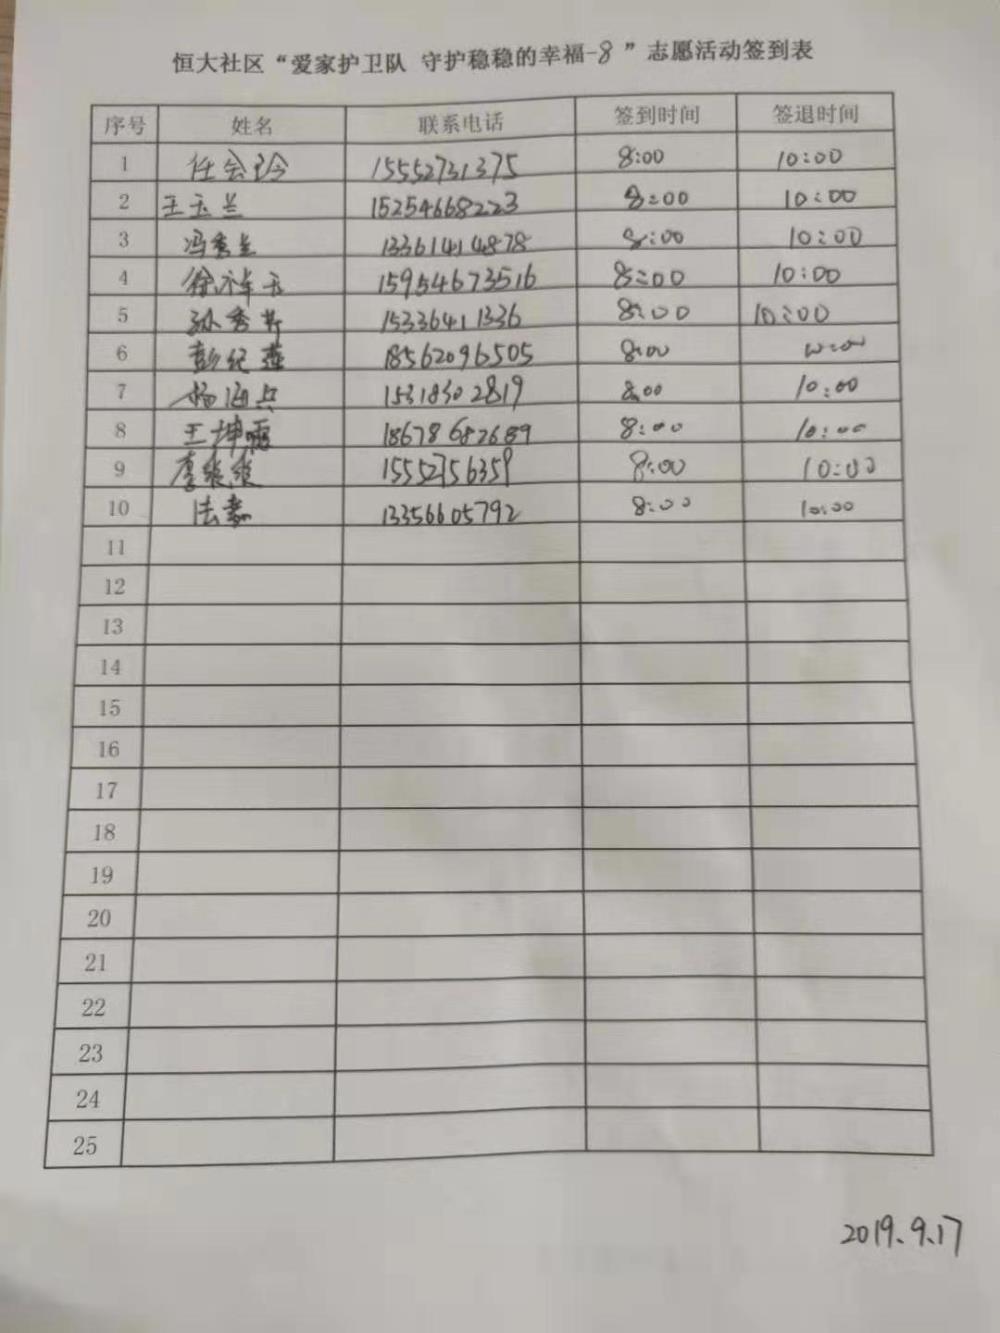 恒大社区“爱家护卫队 守护稳稳的幸福-8”志愿活动签到表
序号 姓名 联系电话 签到时间 签退时间
1 任会玲 15552731375 8:00 10:00
2 王玉兰 15254668223 8:00 10:00
3 冯秀兰 13361414878 8:00 10:00
4 徐 玉 15954673516 8:00 10:00
5 孙秀 15336411336 8:00 10:00
6 彭纪莲 18562096505 8:00 10:00
7 杨海兵 15318302819 8:00 10:00
8 王坤 18678682689 8:00 10:00
9 李 15552756359 8:00 10:00
10 法 13356605792 8:00 10:00
11
12
13
14
15
16
17
18
19
20
21
22
23
24
25
2019.9.17